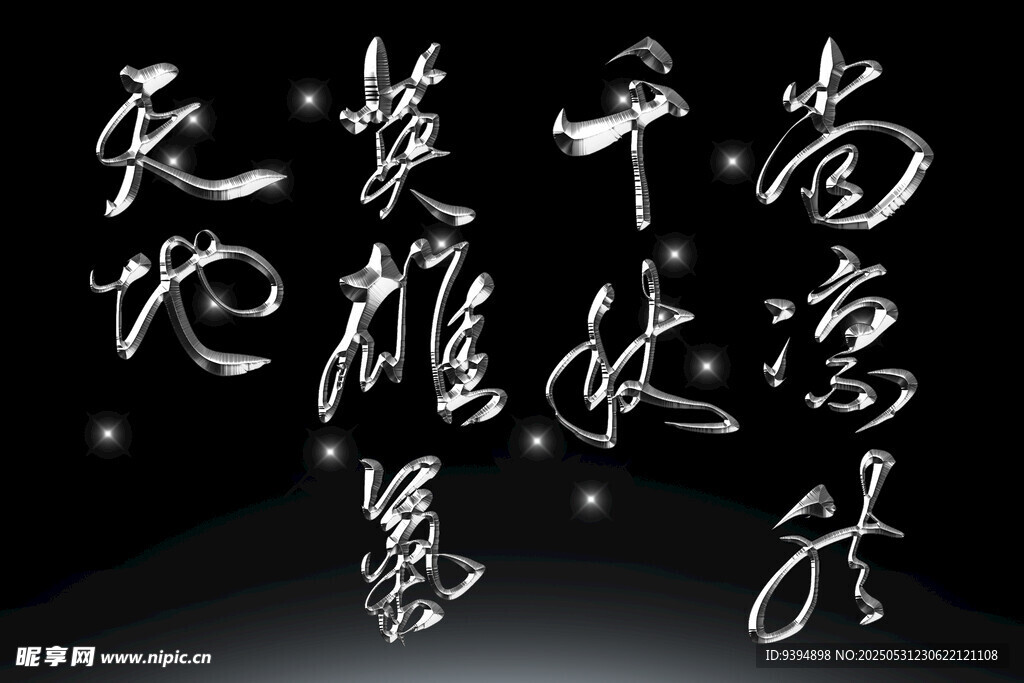 天地
英雄氣
千秋
尚凛然
昵享网 www.nipic.cn
ID:9394898 NO:20250531230622121108